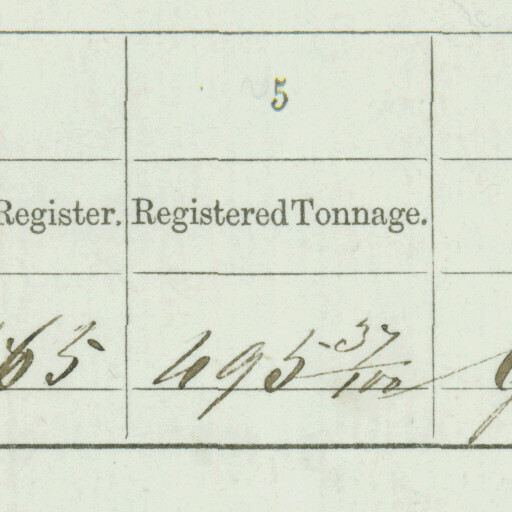 5
Register. Registered Tonnage.
65 495 37/100